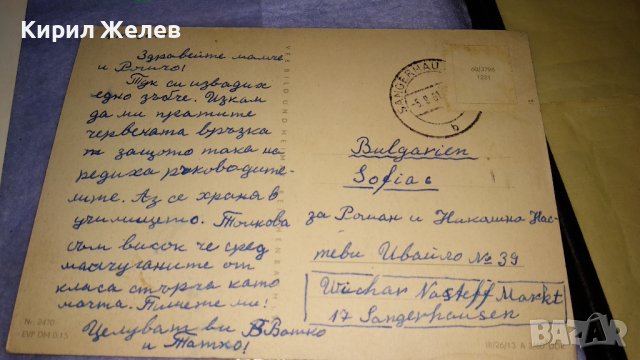 Кирил Желев
Здравейте мамче
и Рончо!
Тук си извадих
едно зъбче. Искам
да ми пратите
червената връзка
защото така на-
редиха ръководите-
лите. Аз се храня в
училището. Толкова
съм висок че сред
малчуганите от
класа стърча като
мачта. Пишете ми!
Целувам ви Ватко
и Татко!
Nr. 2470
EVP DM 0,15
VEB BILD UND HEIMAT
60/3796
1221
SANGERHAU
-5.8.61
b
Bulgarien
Sofia 6
за Роман и Николина Нас-
теви Ивайло № 39
Wachar Nasteff Markt
17 Sangerhausen
III/26/13 A
bazar.bg